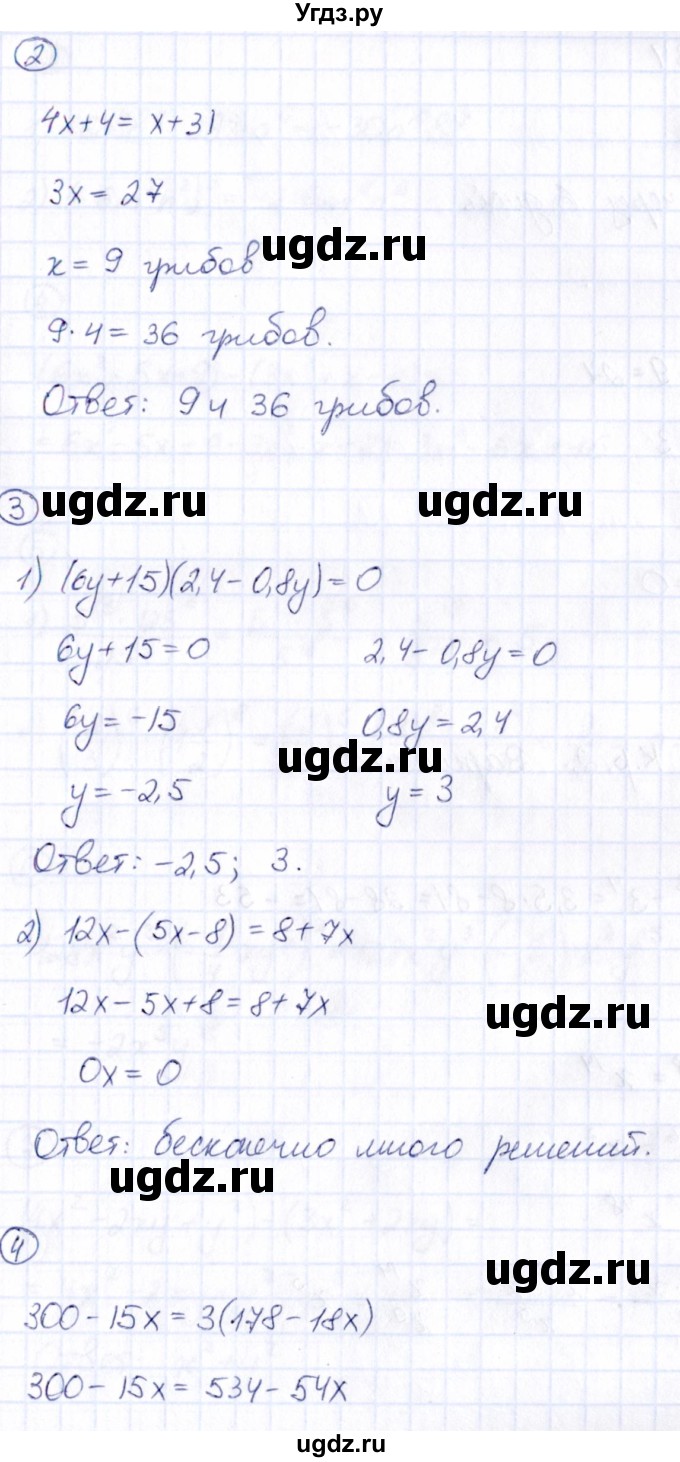 Угдз.ру
2
4x+4= x+31
3x= 27
ugdz.ru
x= 9 грибов
9·4= 36 грибов.
Ответ: 9 и 36 грибов.
3
ugdz.ru ugdz.ru
1) (6y+15)(2,4-0,8y)=0
6y+15=0 2,4-0,8y=0
6y=-15 0,8y=2,4
ugdz.ru
y=-2,5 y=3
Ответ: -2,5; 3.
2) 12x-(5x-8)=8+7x
12x-5x+8=8+7x
ugdz.ru
0x=0
Ответ: бесконечно много решений.
ugdz.ru
4
ugdz.ru
300-15x=3(178-18x)
300-15x=534-54x
ugdz.ru